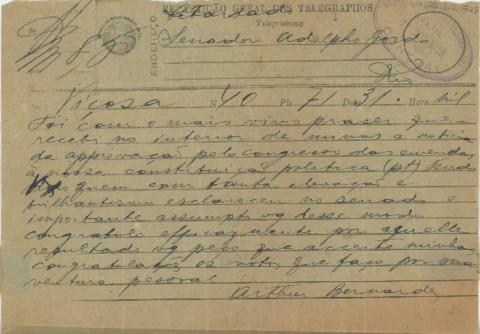 REPARTIÇÃO GERAL DOS TELEGRAPHOS
Telegramma
ENDEREÇO
Senador Adolpho Gordo
Rio
Viçosa N 40 Pls 71 Data 31. Hora
Foi com o mais vivo praser que
recebi no interior de minas a noticia
da approvação pelo congresso das emendas
a nossa constituição politica (pt)
quem com tanta elevação e
brilhantismo esclareceu no senado o
importante assumpto vg desse modo
congratulo efficazmente por aquelle
resultado vg peço que acceite minhas
congratulações es votos que faço por sua
ventura pessoal
Arthur Bernardes